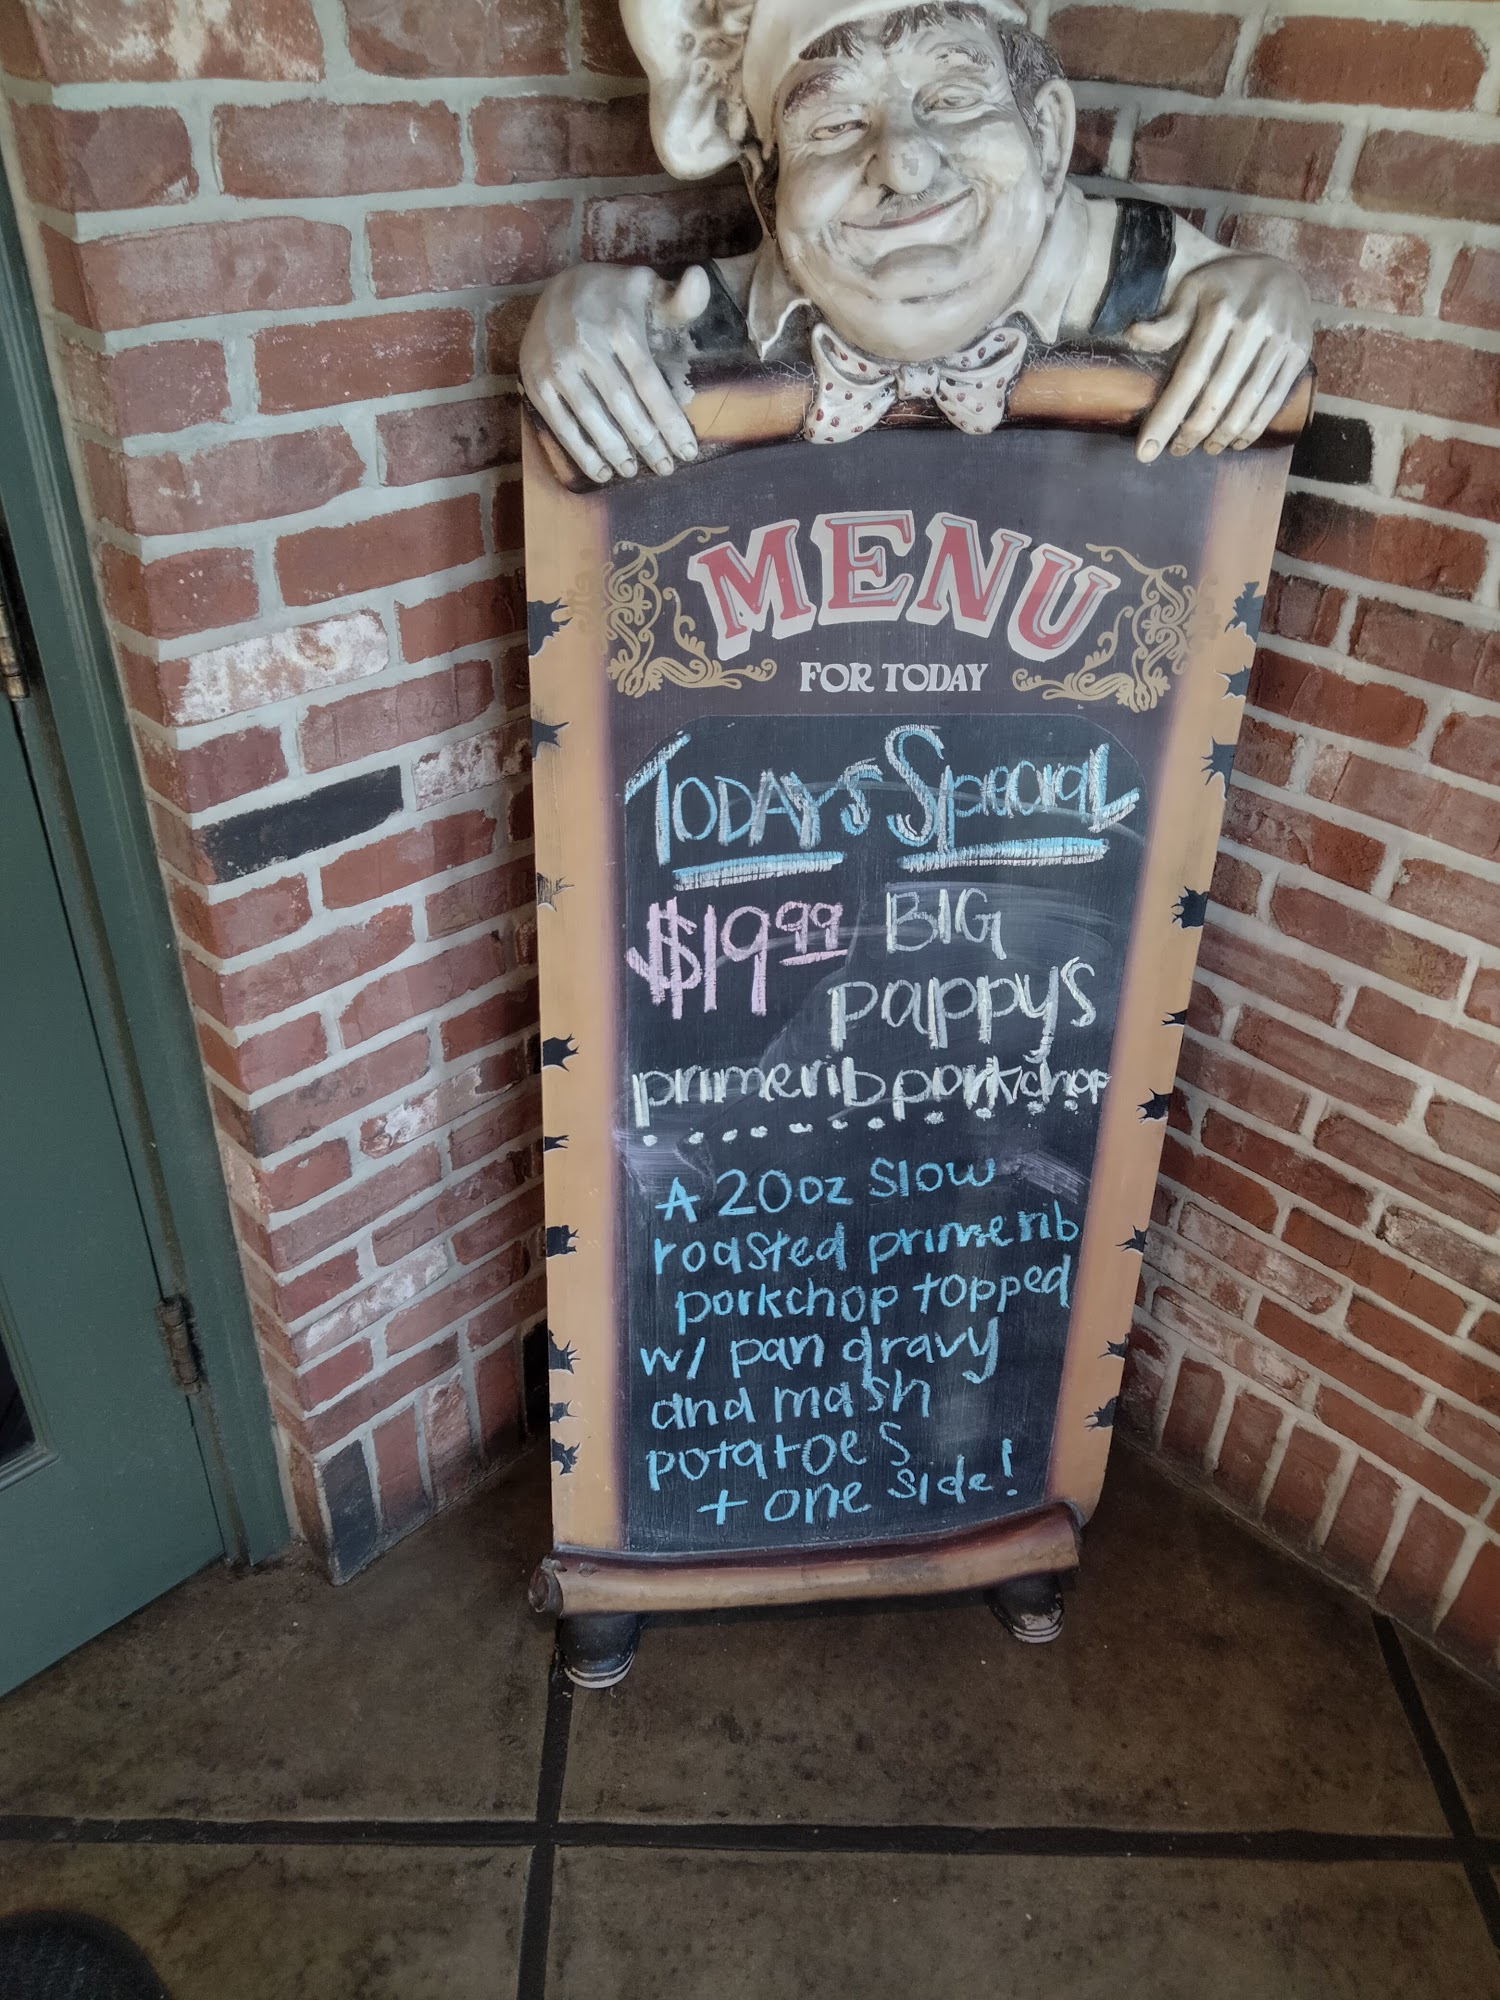 MENU
FOR TODAY
TODAYS Special
$19.99 BIG
pappys
primerib porkchop
A 20oz slow
roasted primerib
porkchop topped
w/ pan gravy
and mash
potatoes
+ one side!